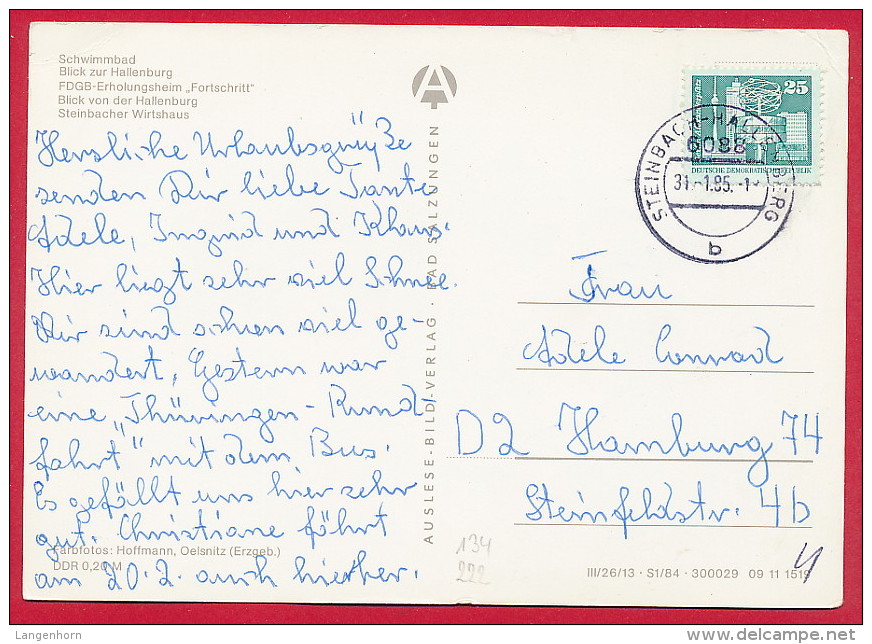 Schwimmbad
Blick zur Hallenburg
FDGB-Erholungsheim „Fortschritt"
Blick von der Hallenburg
Steinbacher Wirtshaus
Herzliche Urlaubsgrüße
senden Dir liebe Tante
Adele, Ingrid und Klaus.
Hier liegt sehr viel Schnee.
Wir sind schon viel ge-
wandert, Gestern war
eine „Thüringen-Rund
fahrt" mit dem Bus.
Es gefällt uns hier sehr
gut. Christiane fährt
am 20.2. auch hierher.
Farbfotos: Hoffmann, Oelsnitz (Erzgeb.)
DDR 0,20 M
AUSLESE-BILD-VERLAG · BAD SALZUNGEN
A
25
DEUTSCHE DEMOKRATISCHE REPUBLIK
STEINBACH-HALLENBERG
6088
31.-1.85.-1
b
Frau
Adele Conrad
D2 Hamburg 74
Steinfeldstr. 4b
134
222
4
III/26/13 · S1/84 · 300029 09 11 1519
Langenhorn
delcampe.net